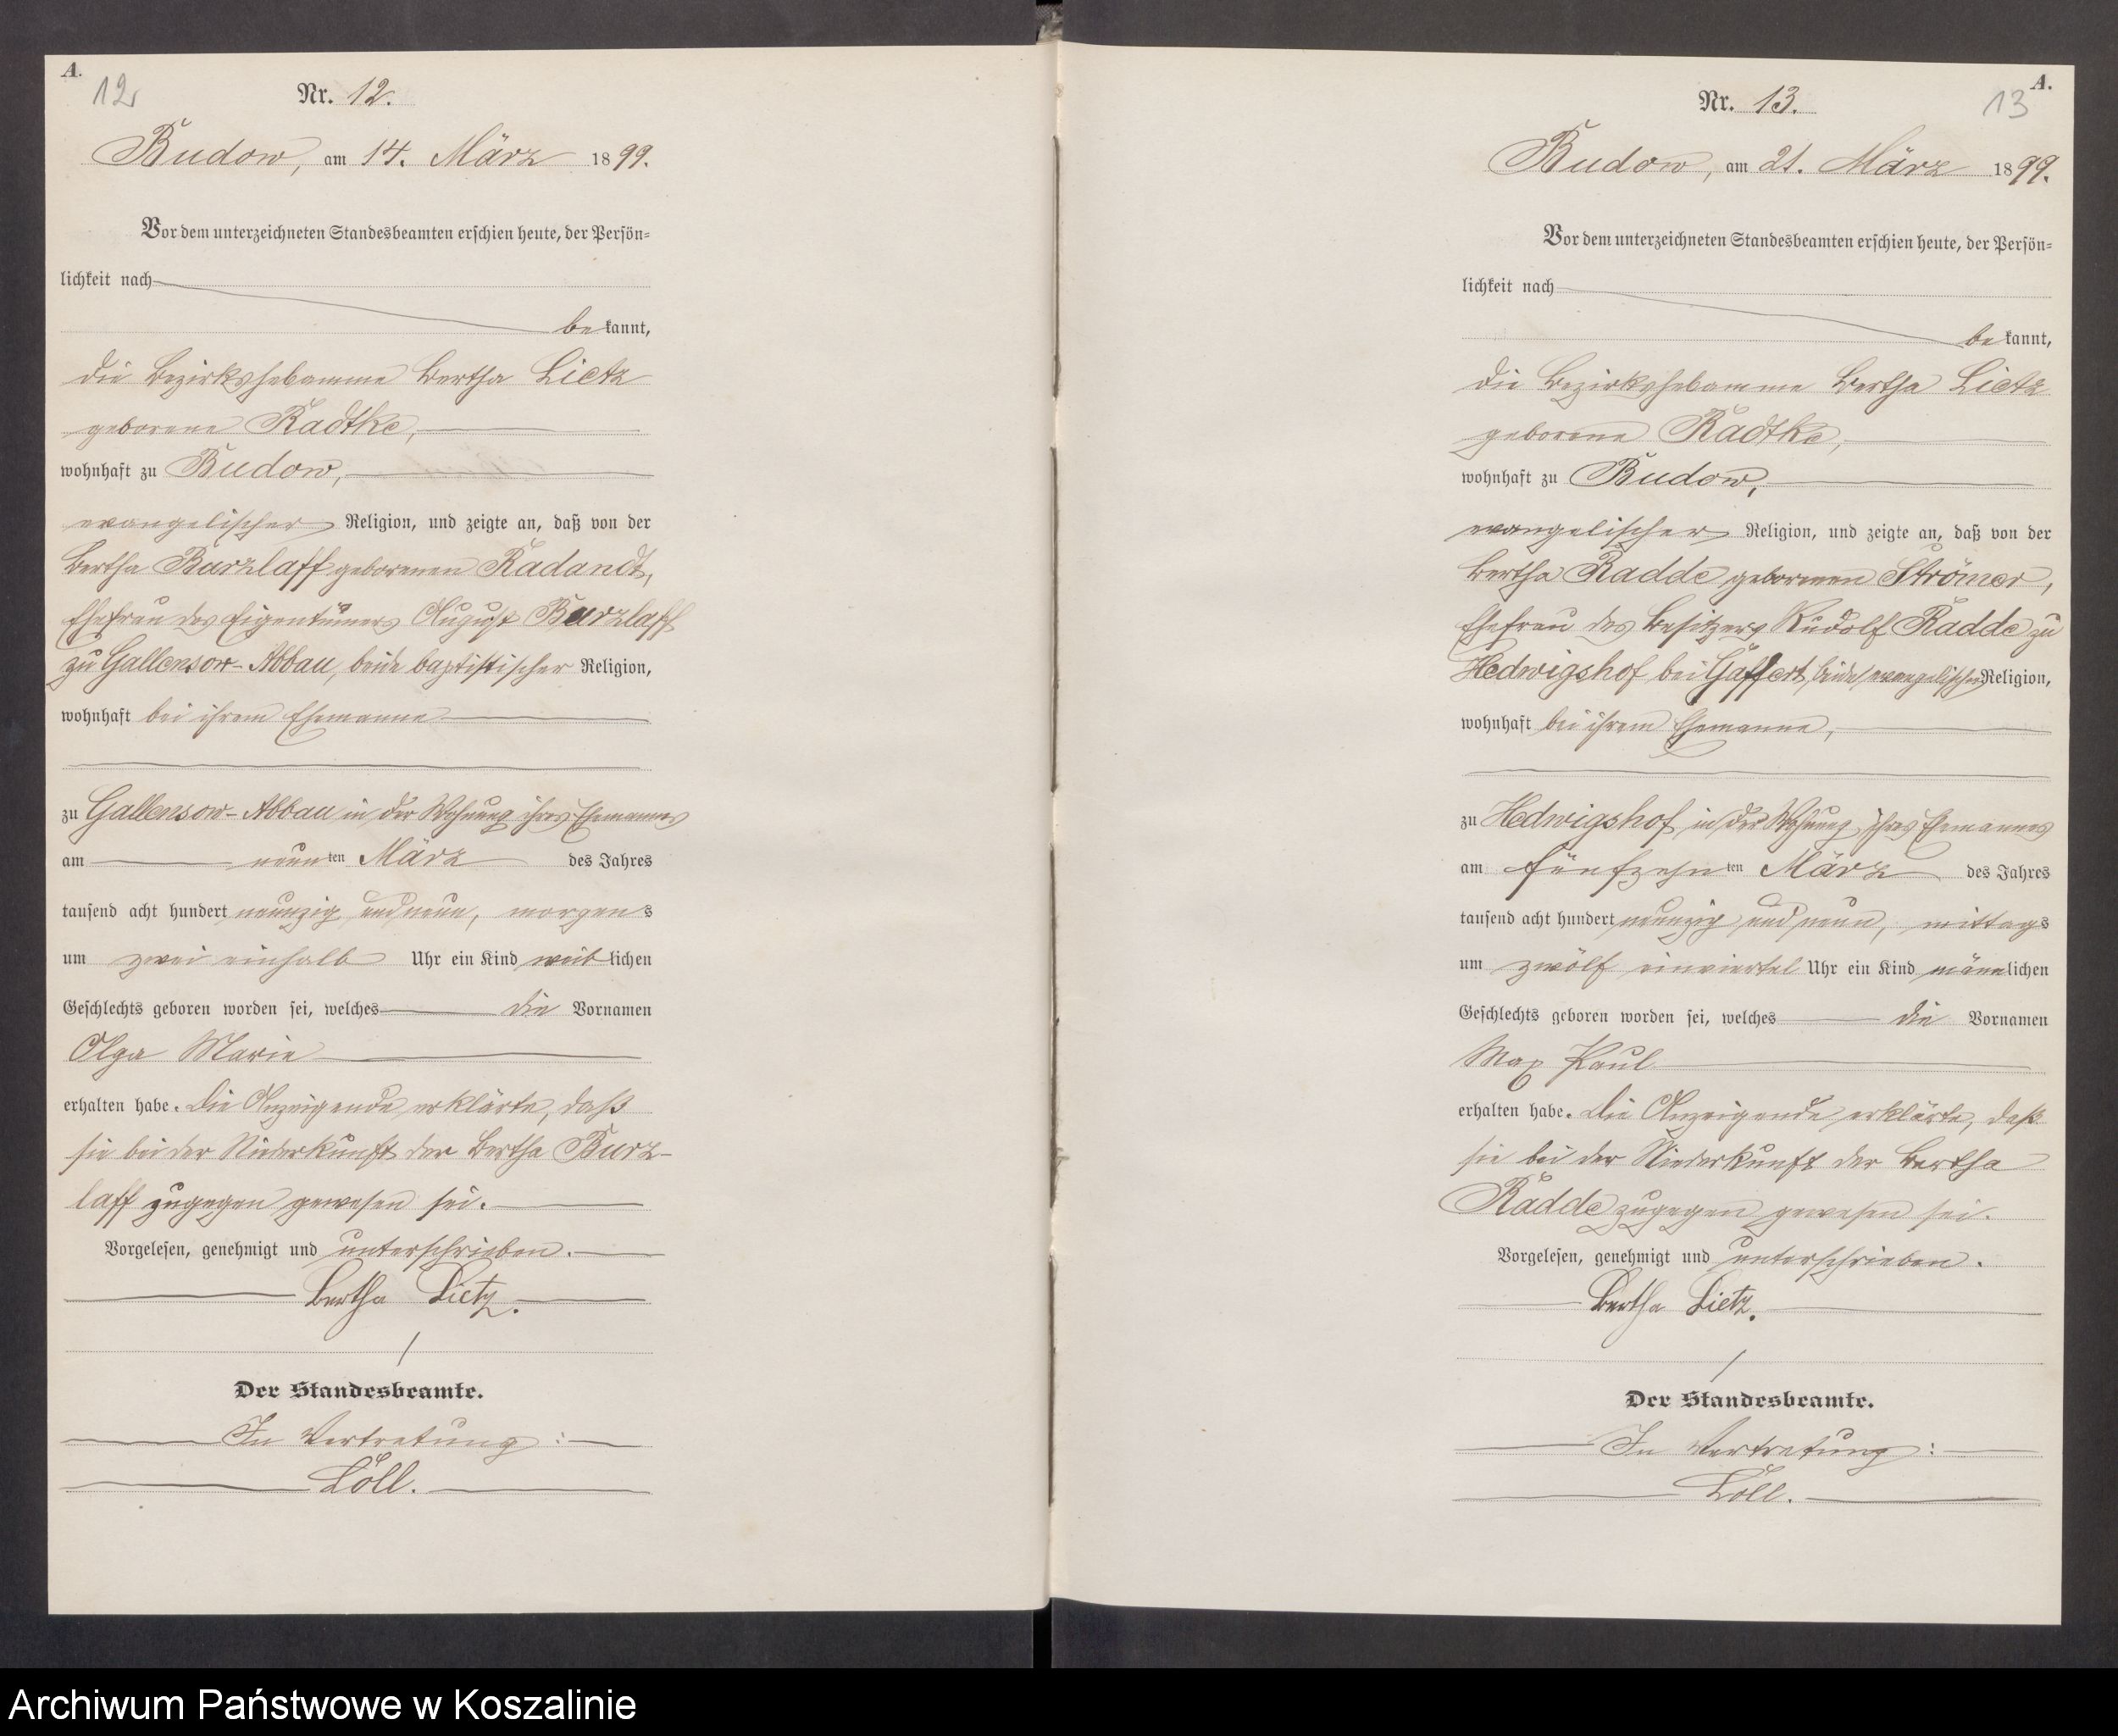 A.
12
Nr. 12.
Budow, am 14. März 1899.
Vor dem unterzeichneten Standesbeamten erschien heute, der Persön=
lichkeit nach
bekannt,
die Bezirkshebamme Bertha Lietz
geborene Radtke,
wohnhaft zu Budow,
evangelischer Religion, und zeigte an, daß von der
Bertha Burzlaff geborenen Radandt,
Ehefrau des Eigentümers August Burzlaff
zu Gallensow-Abbau, beide baptistischer Religion,
wohnhaft bei ihrem Ehemanne
zu Gallensow-Abbau in der Wohnung ihres Ehemannes
am neunten März des Jahres
tausend acht hundert neunzig und neun, morgens
um zwei einhalb Uhr ein Kind weiblichen
Geschlechts geboren worden sei, welches die Vornamen
Olga Marie
erhalten habe. Die Anzeigende erklärte, daß
sie bei der Niederkunft der Bertha Burz-
laff zugegen gewesen sei.
Vorgelesen, genehmigt und unterschrieben.
Bertha Lietz.
Der Standesbeamte.
In Vertretung:
Löll.
A.
13
Nr. 13.
Budow, am 21. März 1899.
Vor dem unterzeichneten Standesbeamten erschien heute, der Persön=
lichkeit nach
bekannt,
die Bezirkshebamme Bertha Lietz
geborene Radtke,
wohnhaft zu Budow,
evangelischer Religion, und zeigte an, daß von der
Bertha Radde geborenen Strömer,
Ehefrau des Besitzers Rudolf Radde zu
Hedwigshof bei Gaffert, beide evangelischer Religion,
wohnhaft bei ihrem Ehemanne,
zu Hedwigshof in der Wohnung ihres Ehemannes
am fünfzehnten März des Jahres
tausend acht hundert neunzig und neun, mittags
um zwölf einviertel Uhr ein Kind männlichen
Geschlechts geboren worden sei, welches die Vornamen
Max Paul
erhalten habe. Die Anzeigende erklärte, daß
sie bei der Niederkunft der Bertha
Radde zugegen gewesen sei.
Vorgelesen, genehmigt und unterschrieben.
Bertha Lietz.
Der Standesbeamte.
In Vertretung:
Löll.
Archiwum Państwowe w Koszalinie